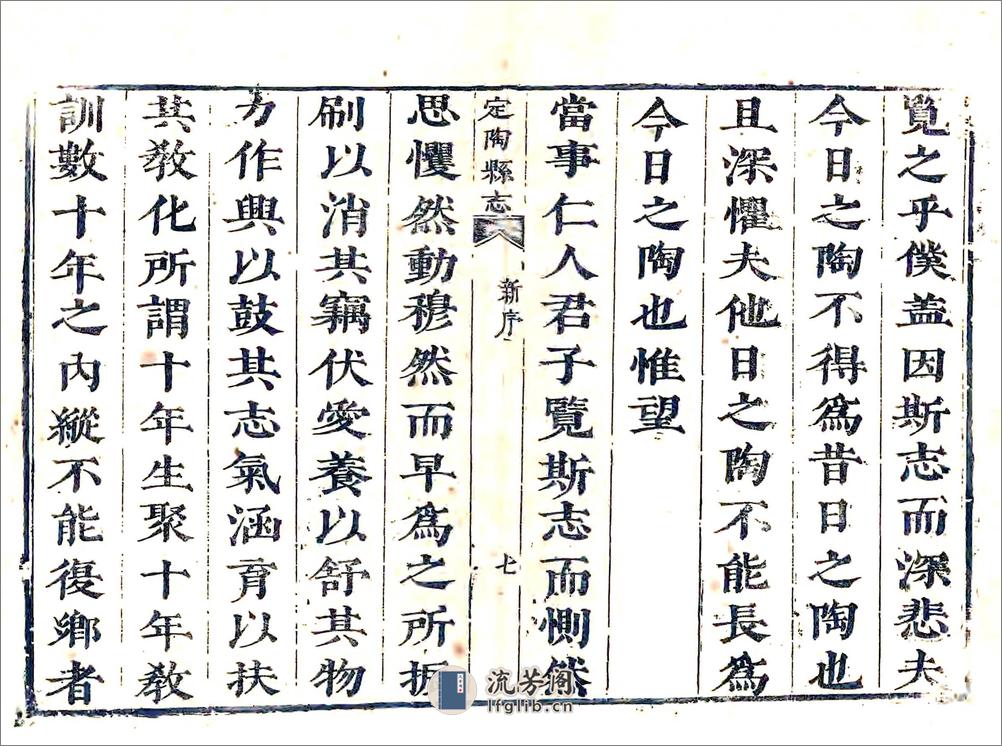 覽之乎僕盖因斯志而深悲夫
今日之陶不得爲昔日之陶也
且深懼夫他日之陶不能長爲
今日之陶也惟望
當事仁人君子覽斯志而惻然
定陶縣志 新序 七
思懼然動穆然而早爲之所振
刷以消其竊伏愛養以舒其物
力作興以鼓其志氣涵育以扶
其敎化所謂十年生聚十年敎
訓數十年之內縱不能復鄉者
流芳阁
lfglib.cn